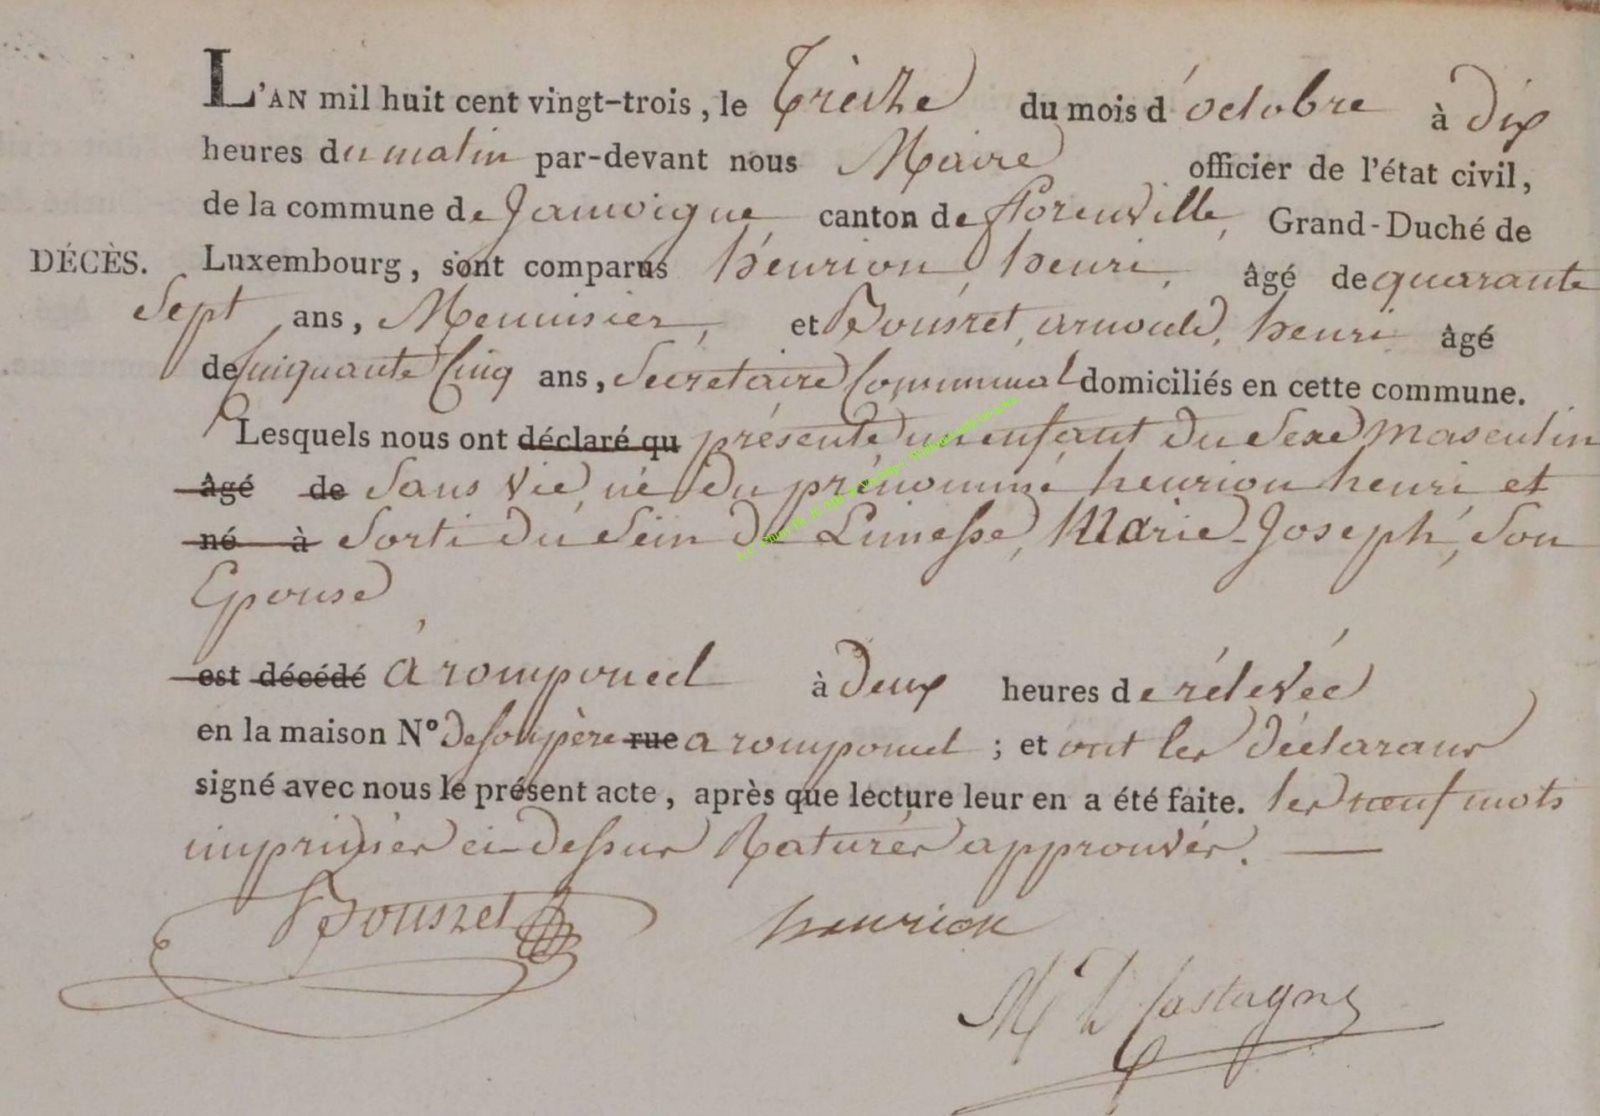 L'AN mil huit cent vingt-trois, le Trèize du mois d'octobre à dix
heures du matin par-devant nous Maire officier de l'état civil,
de la commune de Jamoigne canton de florenville, Grand-Duché de
DÉCÈS. Luxembourg, sont comparus henrion, henri, âgé de quarante
Sept ans, Menuisier, et Pousret, arnould, henri âgé
de Cinquante Cinq ans, Sécrétaire Communal domiciliés en cette commune.
Lesquels nous ont déclaré qu présenté un enfant du Sexe masculin
âgé de Sans vie, né du prénommé henrion henri et
né à Sorti du Sein de Limesse, Marie-Joseph, Son
Epouse
est décédé à romponcel à deux heures de rélevée
en la maison Nº de son père rue a romponcel ; et ont les déclarans
signé avec nous le présent acte, après que lecture leur en a été faite. les neuf mots
imprimés ci-dessus Raturés approuvés.
Pousret henrion